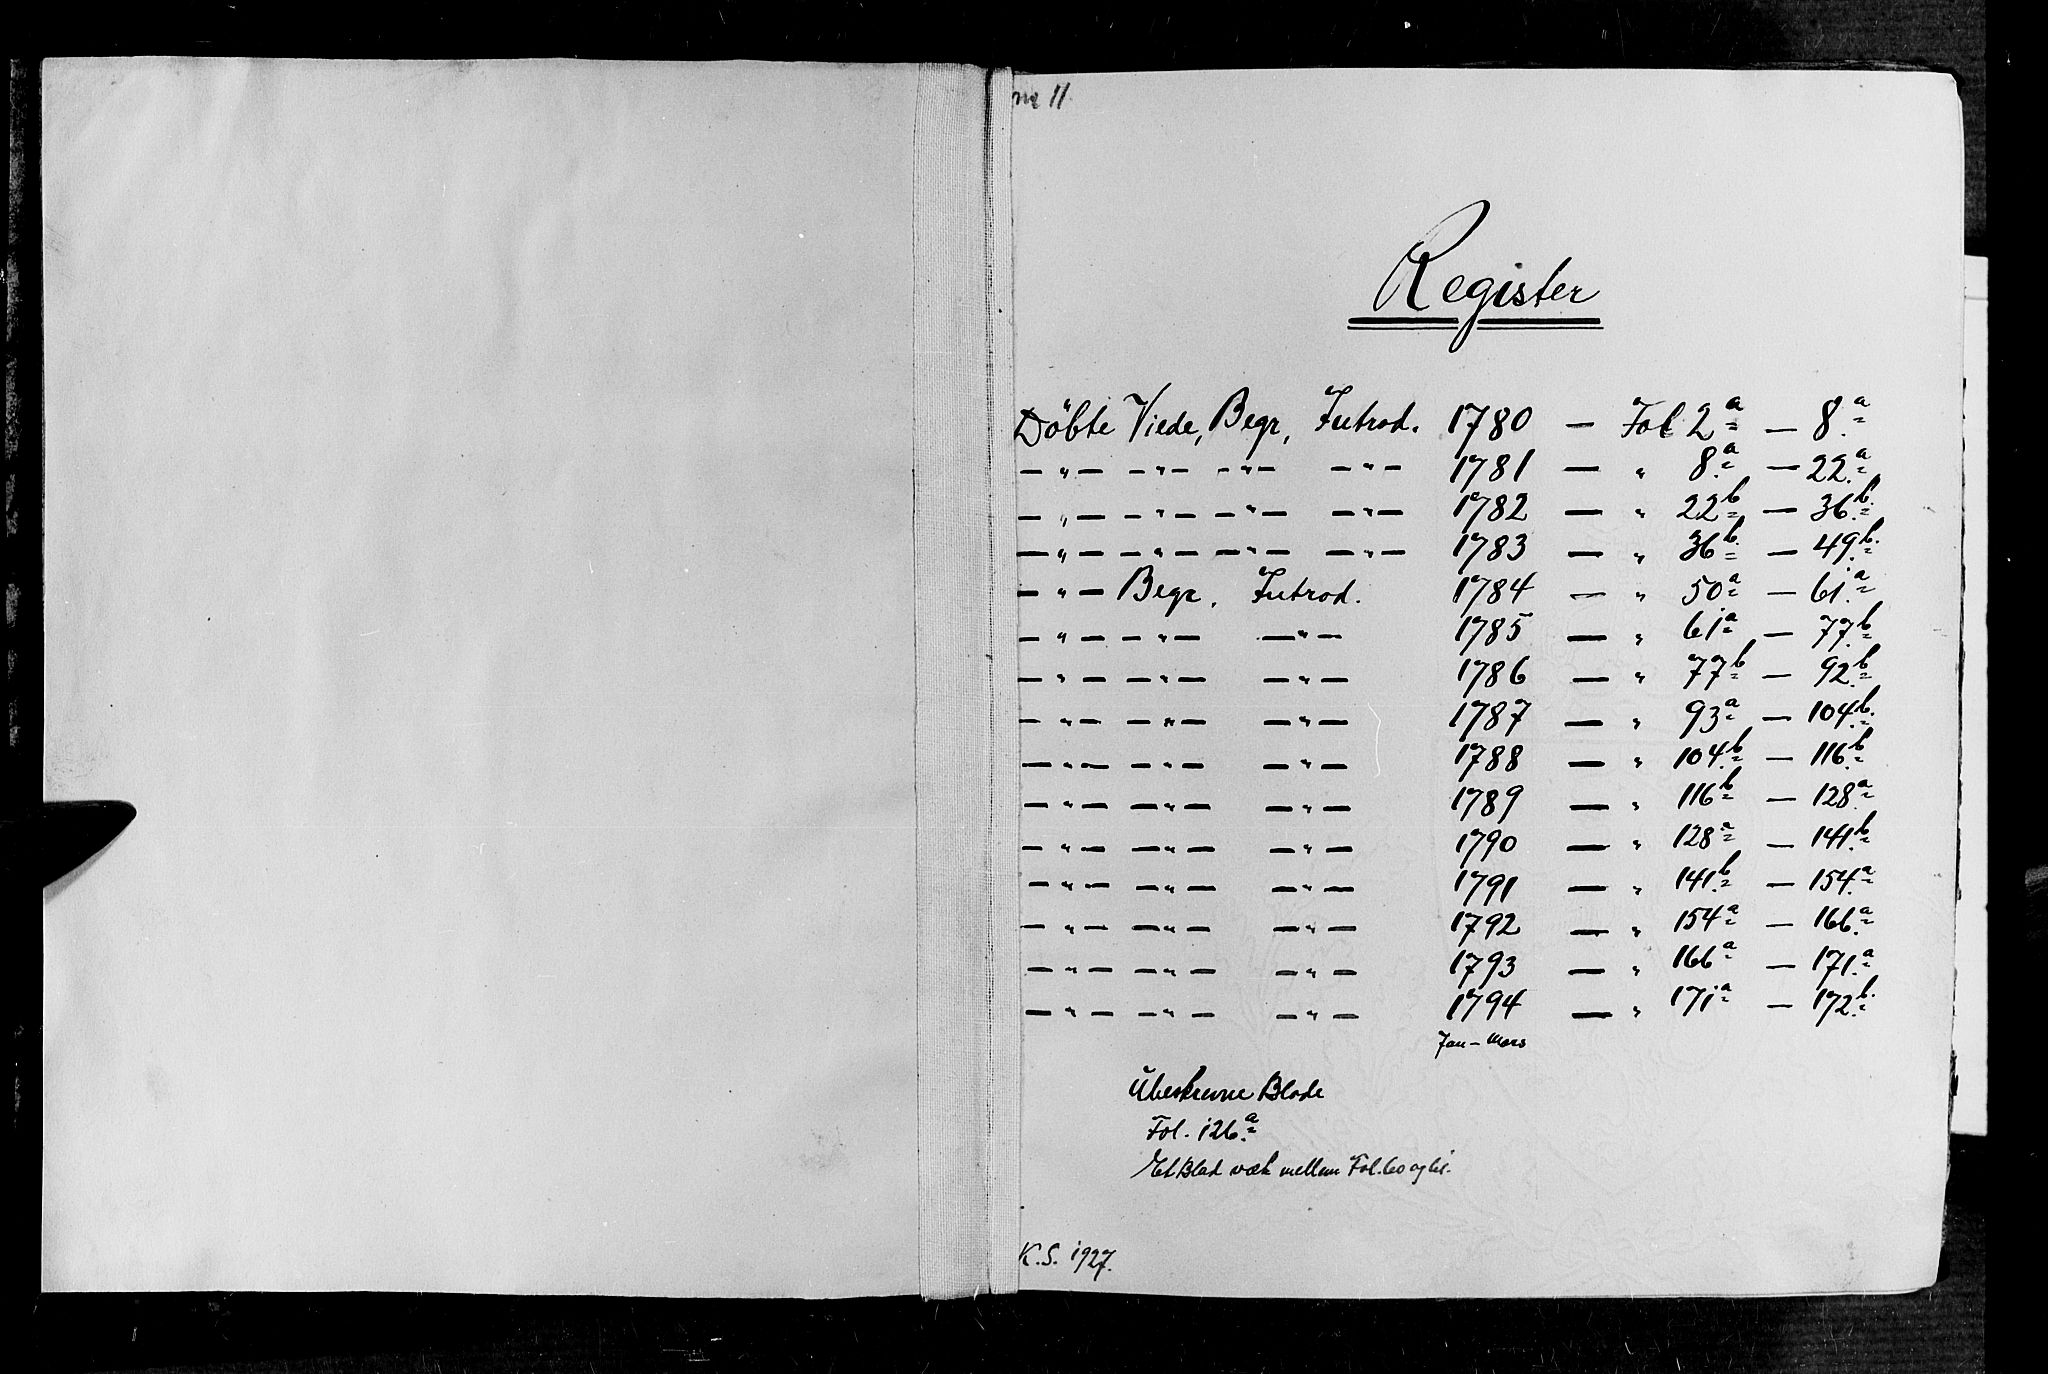 nr 11.
Register
Döbte Viede, Begr, Introd. 1780 — Fol 2a — 8.a
— " — — " — — " — — " — 1781 — " 8.a — 22.a
— " — — " — — " — — " — 1782 — " 22b — 36.b.
— " — — " — — " — — " — 1783 — " 36b. — 49.b.
— " — Begr. Introd. 1784 — " 50a — 61.a
— " — — " — — " — 1785 — " 61a — 77.b
— " — — " — — " — 1786 — " 77b — 92.b
— " — — " — — " — 1787 — " 93a — 104.b.
— " — — " — — " — 1788 — " 104.b — 116.b
— " — — " — — " — 1789 — " 116b — 128a
— " — — " — — " — 1790 — " 128a — 141.b
— " — — " — — " — 1791 — " 141.b — 154.a
— " — — " — — " — 1792 — " 154a — 166.a
— " — — " — — " — 1793 — " 166a — 171.a
— " — — " — — " — 1794 — " 171a — 172.b.
Jan – Mars
Ubeskrevne Blade
Fol. 126.a
Et Blad væk mellem Fol. 60 og 61.
K.S. 1927.